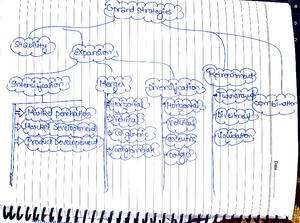 Grand Strategies
Stability
Expansion
Retrenchment
Combination
Intensification
Merger
Diversification
Market Penetration
Market Development
Product Development
Horizontal
Vertical
Conglomerate
Horizontal
Vertical
Turnaround
Divestment
Liquidation